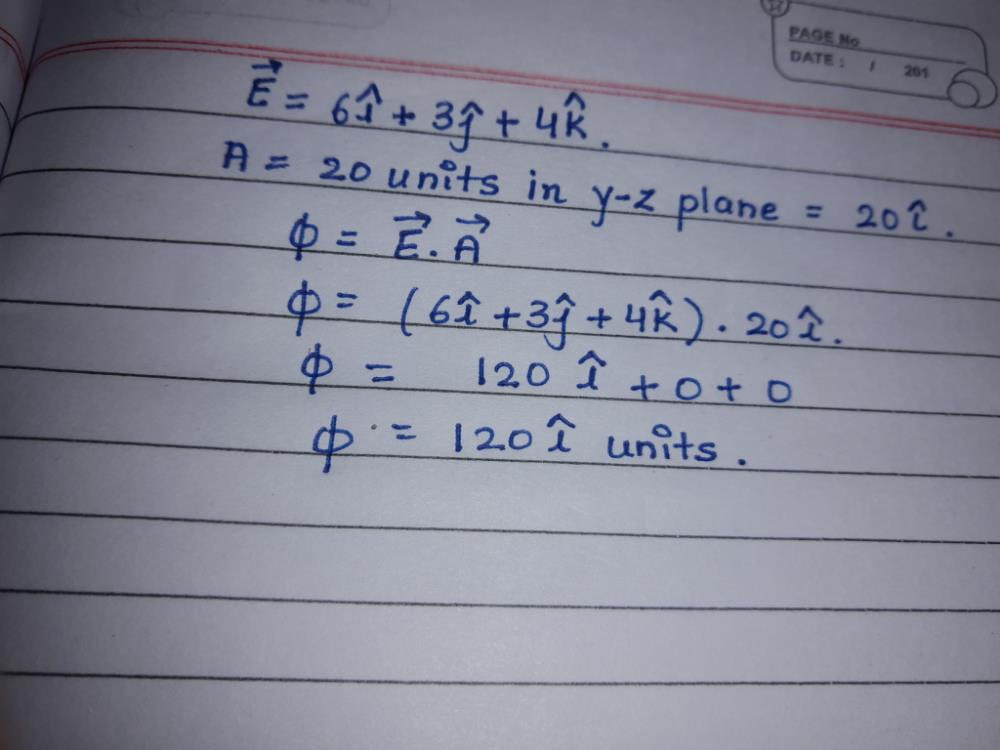 PAGE No
DATE : / 201
E⃗ = 6î + 3ĵ + 4k̂.
A = 20 units in y-z plane = 20î.
ϕ = E⃗. A⃗
ϕ = (6î + 3ĵ + 4k̂) . 20î.
ϕ = 120 î + 0 + 0
ϕ = 120 î units.